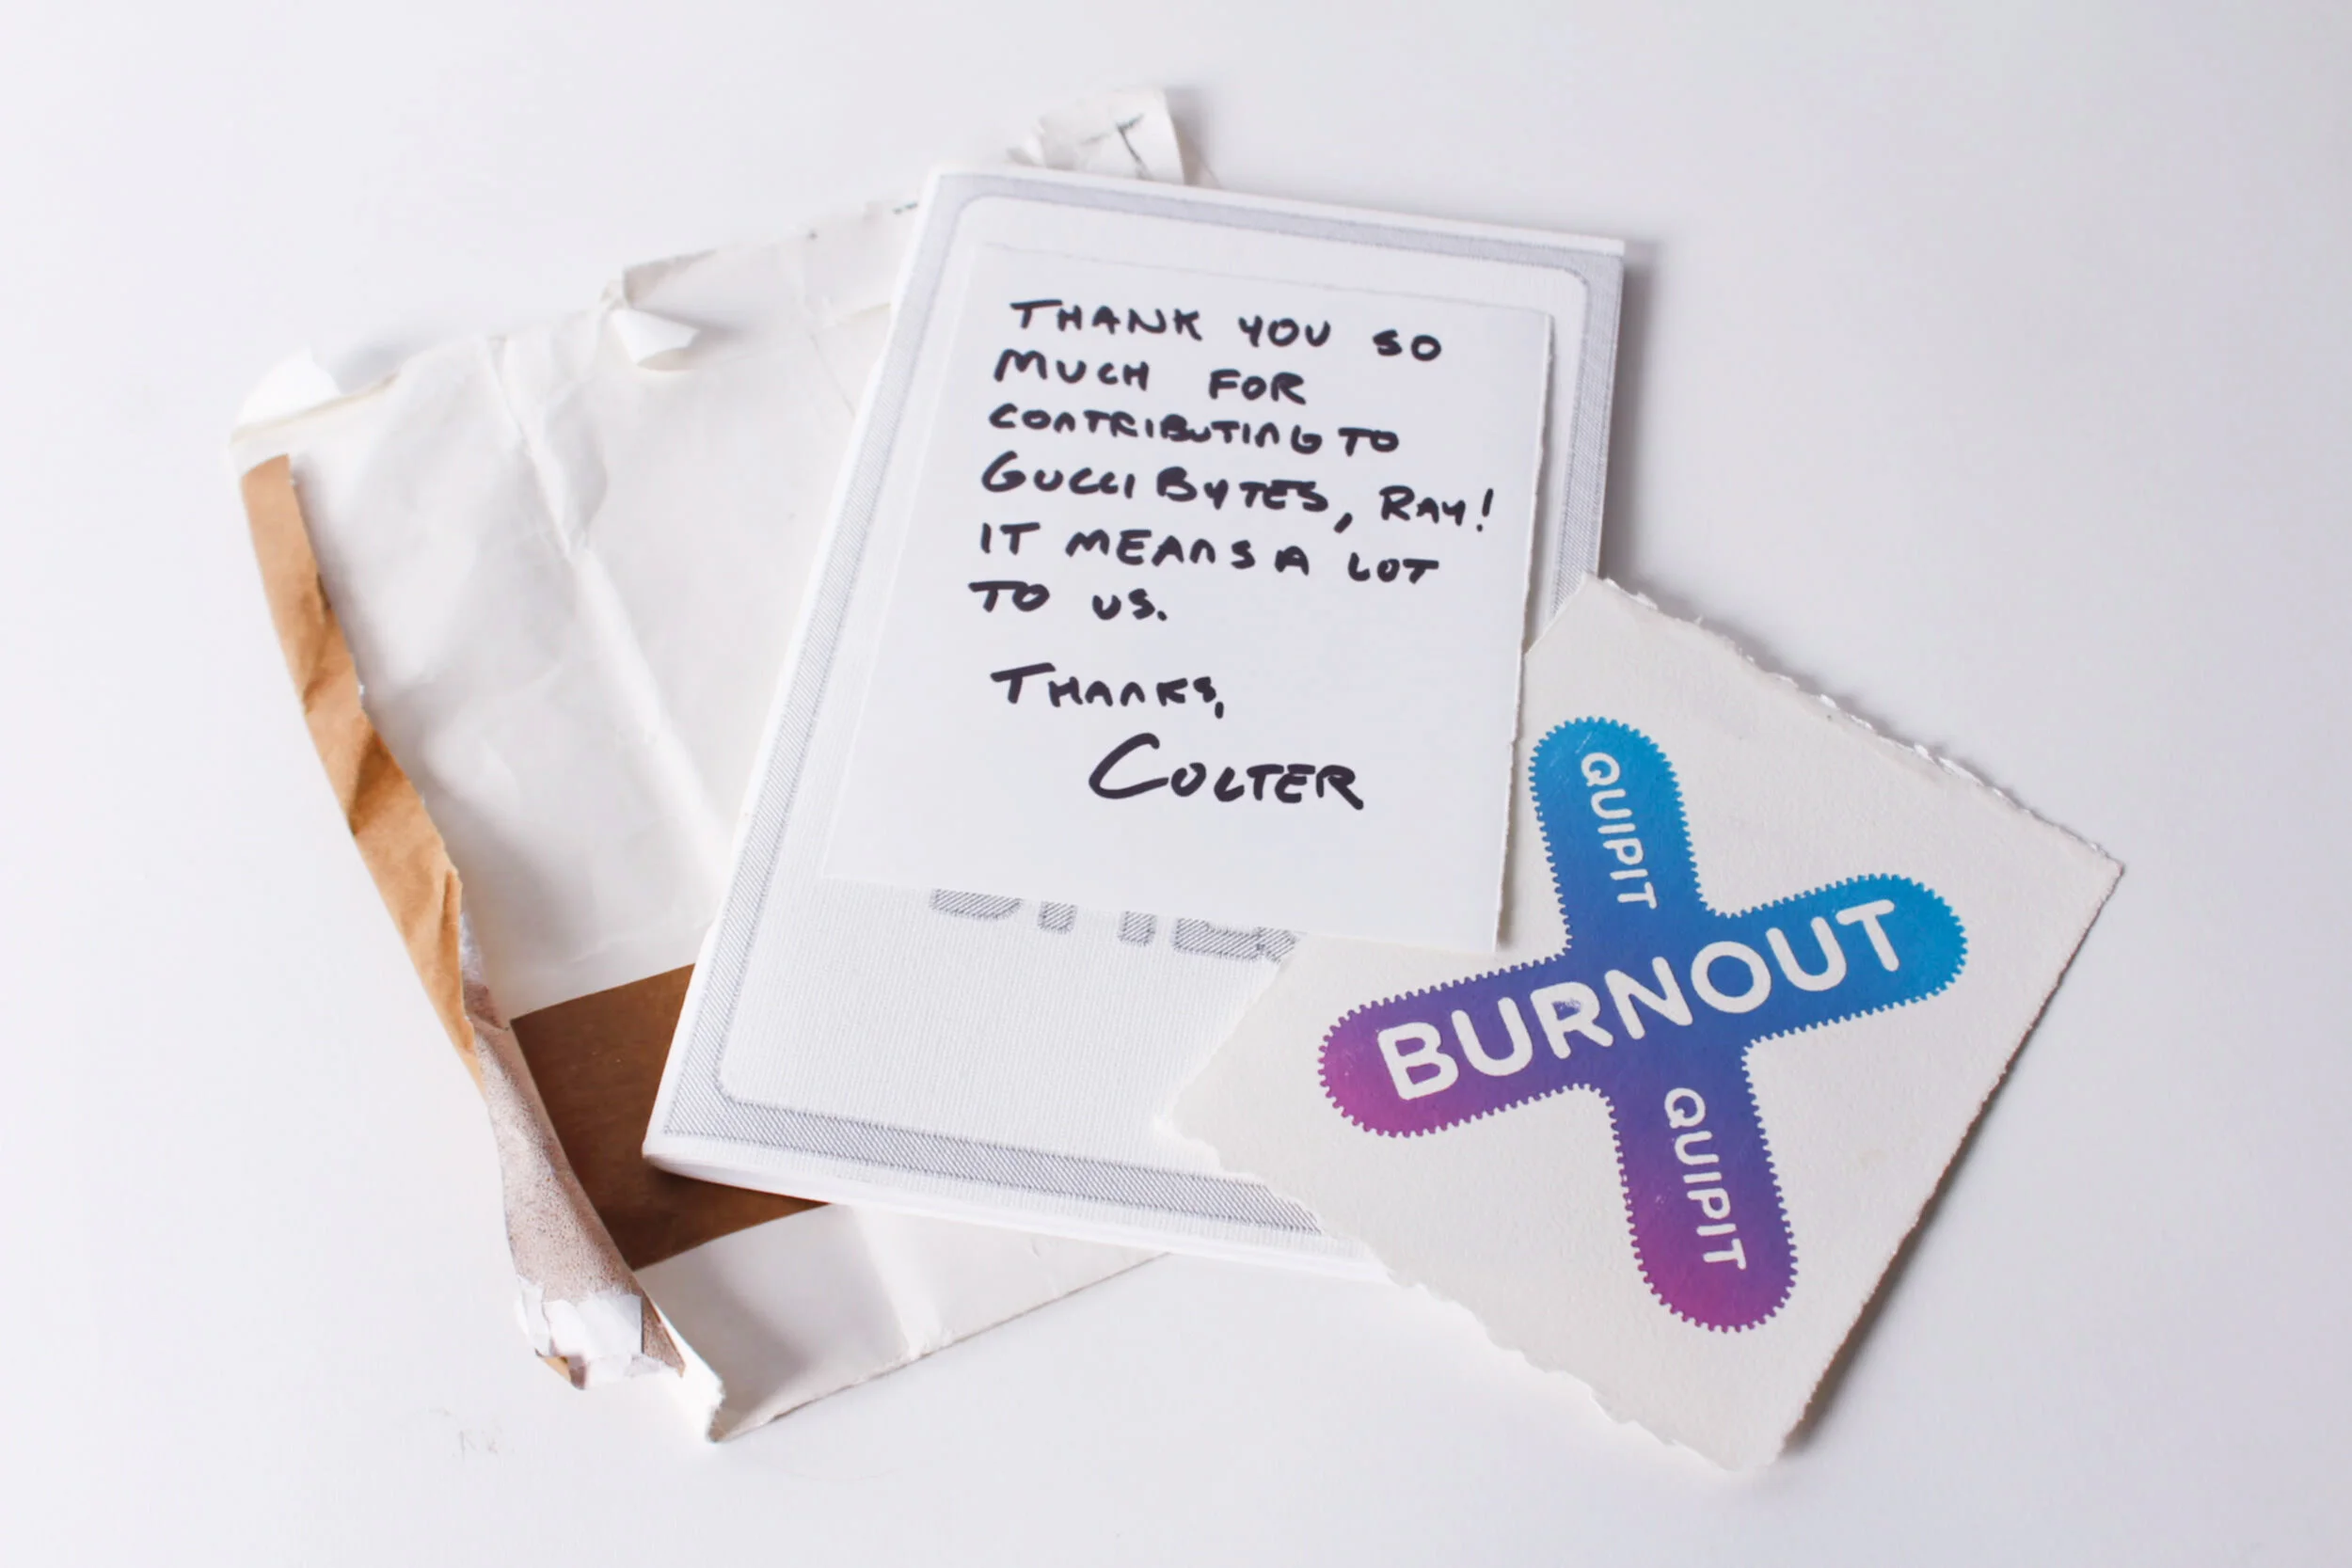 THANK YOU SO
MUCH FOR
CONTRIBUTING TO
GUCCI BYTES, RAY!
IT MEANS A LOT
TO US.
THANKS,
COLTER
QUIPIT
BURNOUT
QUIPIT